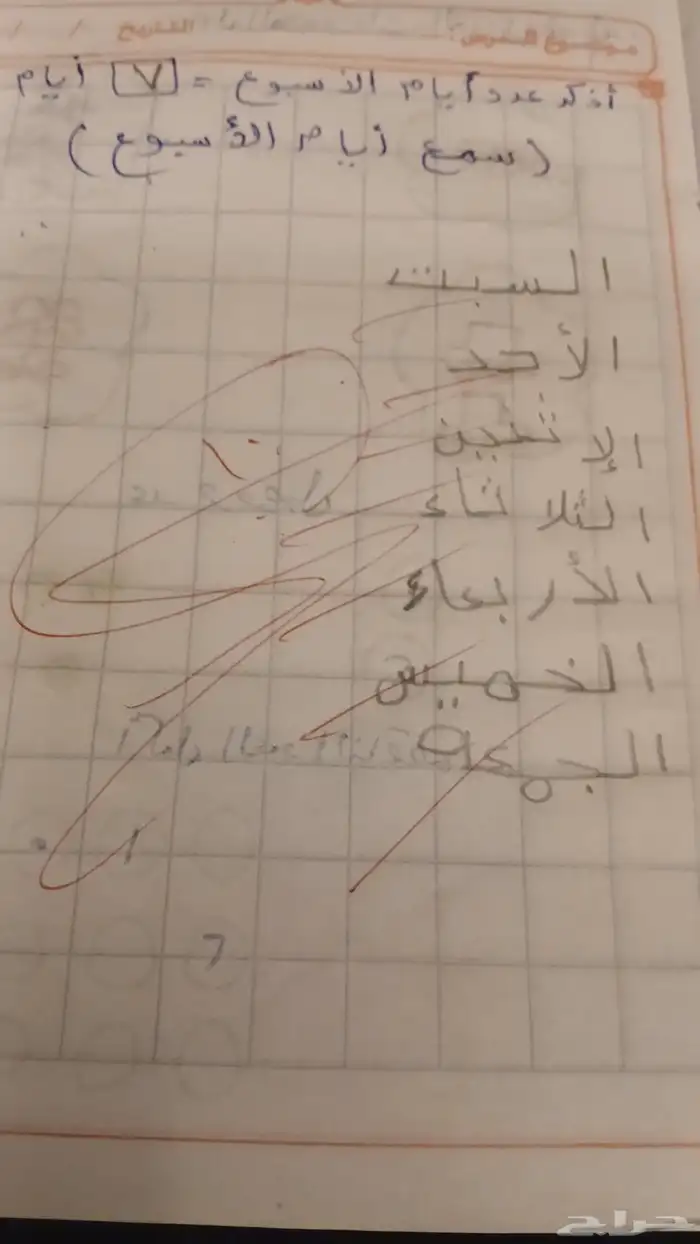 موضوع الدرس: التاريخ / /
أذكر عدد أيام الأسبوع = [٧] أيام
(سمع أيام الأسبوع)
السبت
الأحد
الإثنين
الثلاثاء
الأربعاء
الخميس
الجمعة
حراج